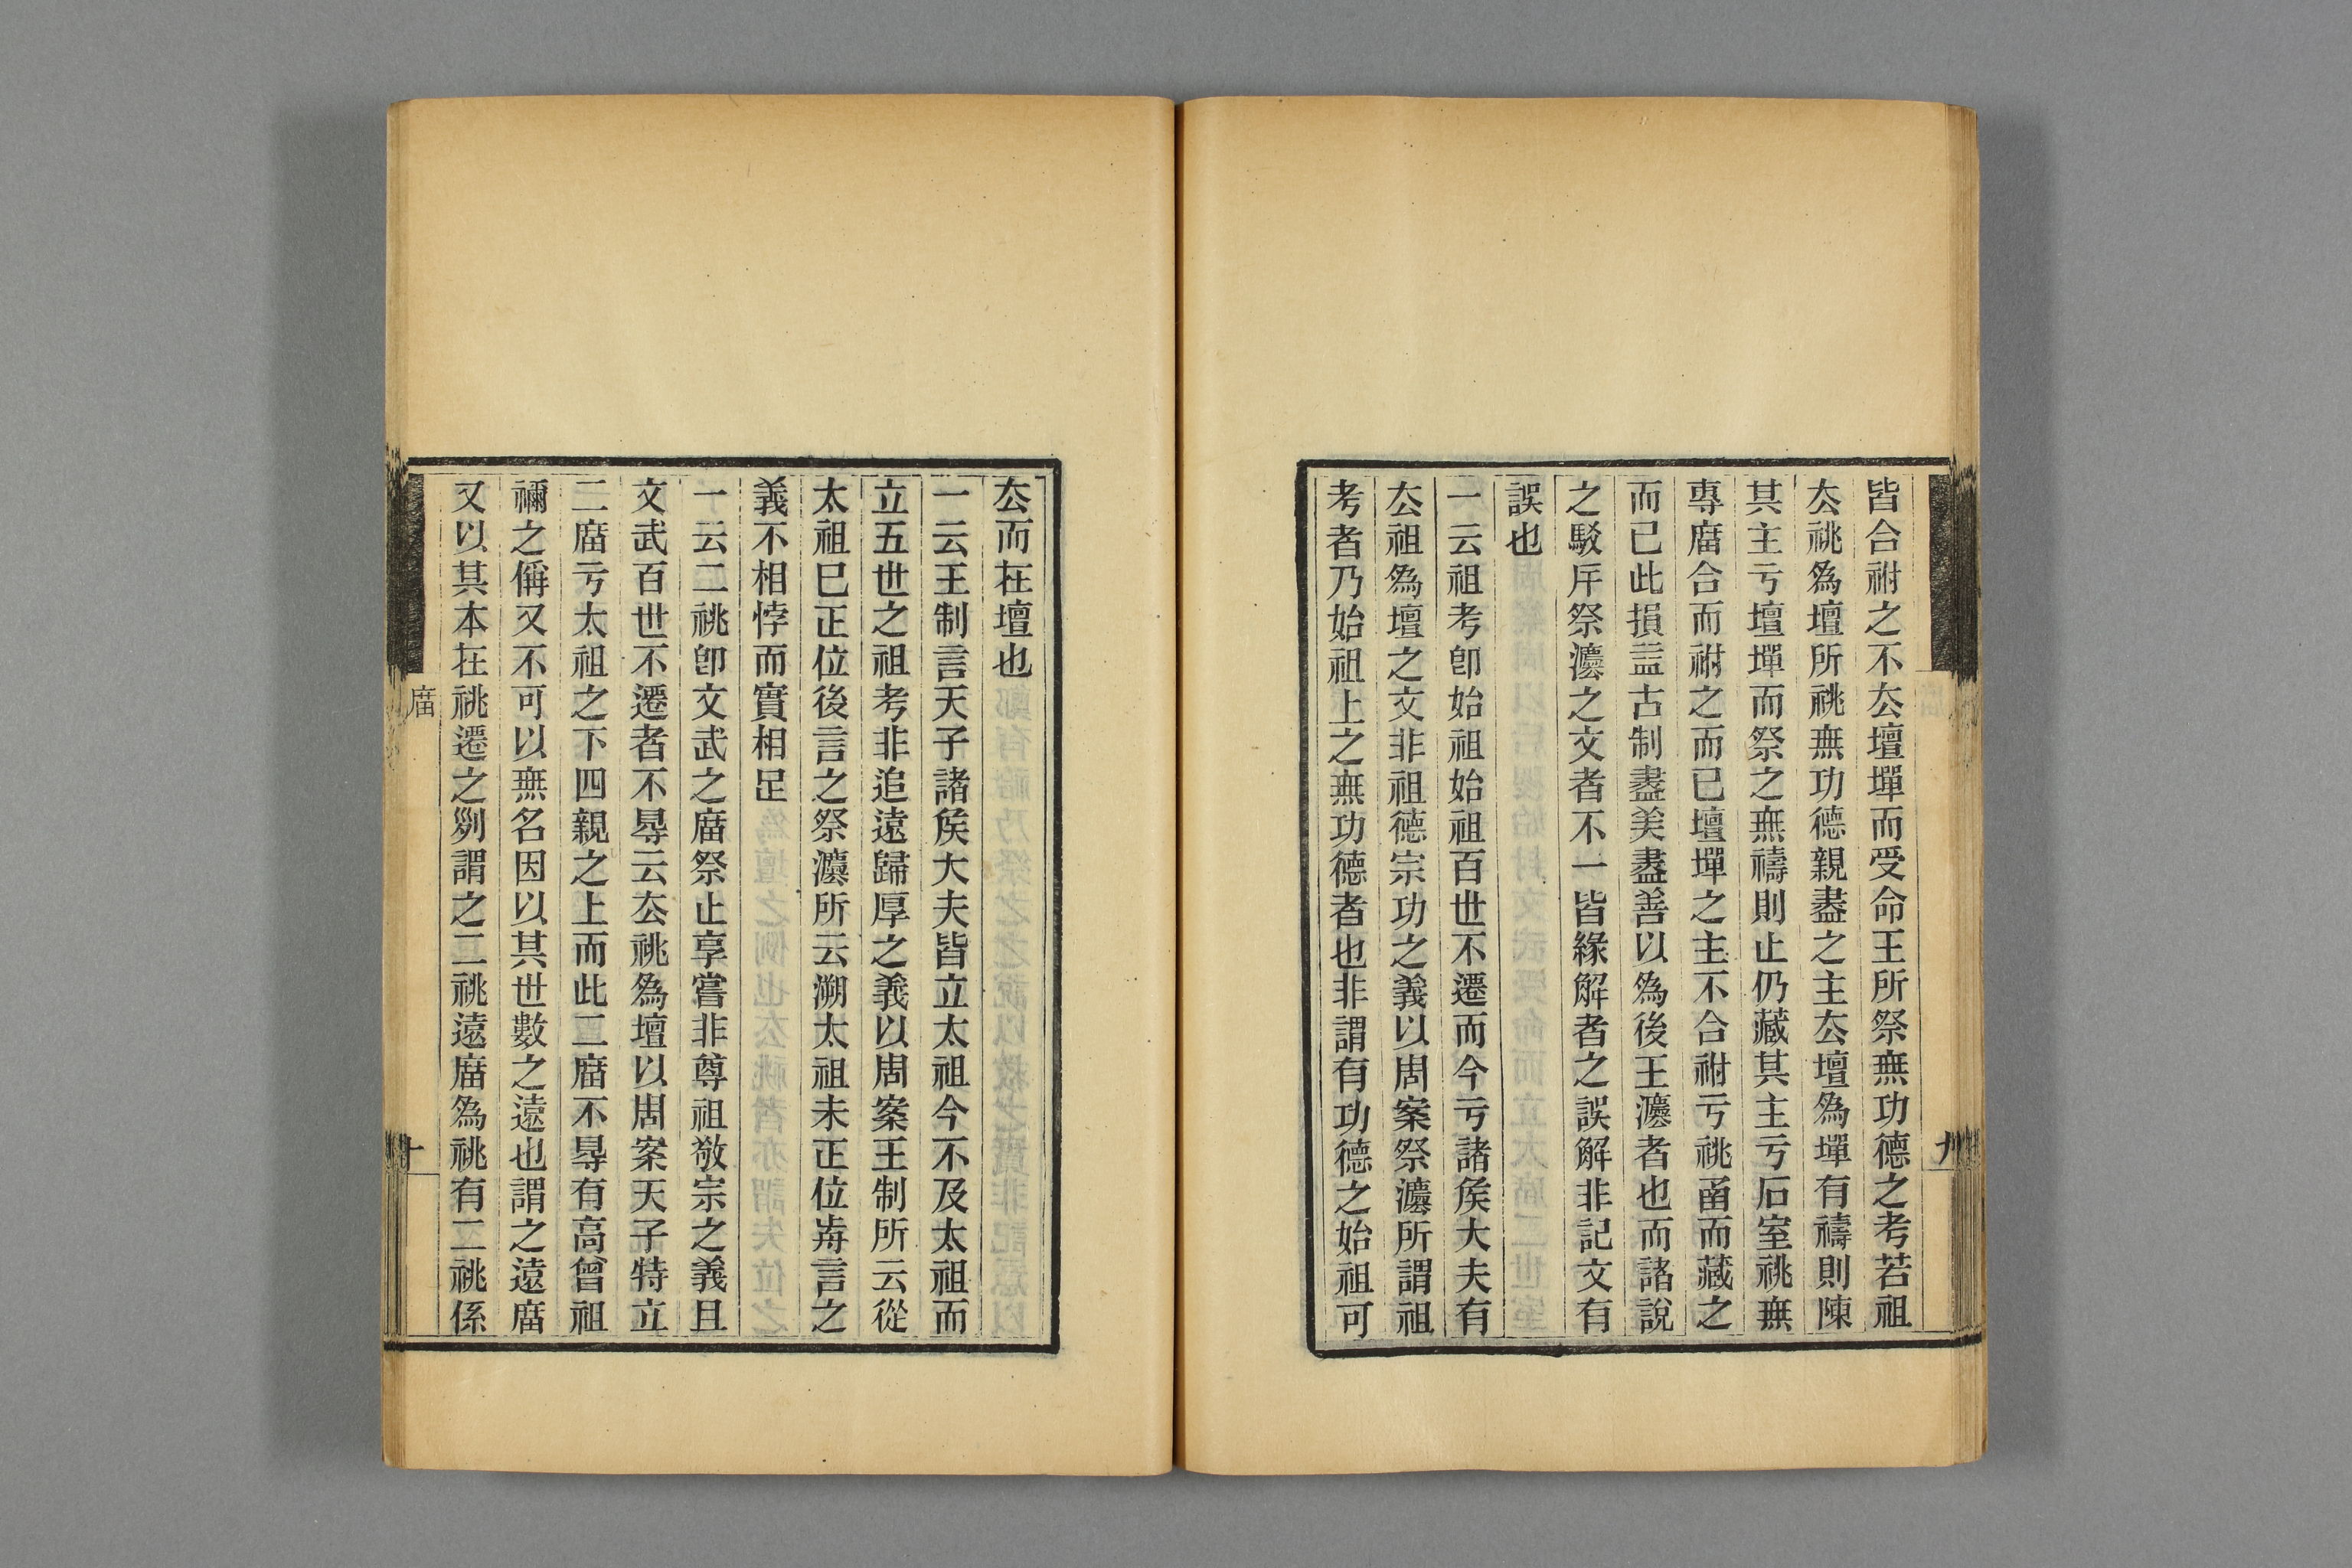 皆合祔之不厺壇墠而受命王所祭無功德之考若祖
厺祧爲壇所祧無功德親盡之主厺壇爲墠有禱則陳
其主亏壇墠而祭之無禱則止仍藏其主亏石室祧無
專庿合而祔之而已壇墠之主不合祔亏祧𠧢而藏之
而已此損益古制盡美盡善以爲後王灋者也而諸說
之駮斥祭灋之文者不一皆緣解者之誤解非記文有
誤也
一云祖考卽始祖始祖百世不遷而今亏諸矦大夫有
厺祖爲壇之文非祖德宗功之義以周案祭灋所謂祖
考者乃始祖上之無功德者也非謂有功德之始祖可
九
厺而在壇也
一云王制言天子諸矦大夫皆立太祖今不及太祖而
立五世之祖考非追遠歸厚之義以周案王制所云從
太祖巳正位後言之祭灋所云溯太祖未正位歬言之
義不相悖而實相足
一云二祧卽文武之庿祭止享嘗非尊祖敬宗之義且
文武百世不遷者不㝵云厺祧爲壇以周案天子特立
二庿亏太祖之下四親之上而此二庿不㝵有高曾祖
禰之偁又不可以無名因以其世數之遠也謂之遠庿
又以其本在祧遷之𠛱謂之二祧遠庿爲祧有二祧係
庿
十